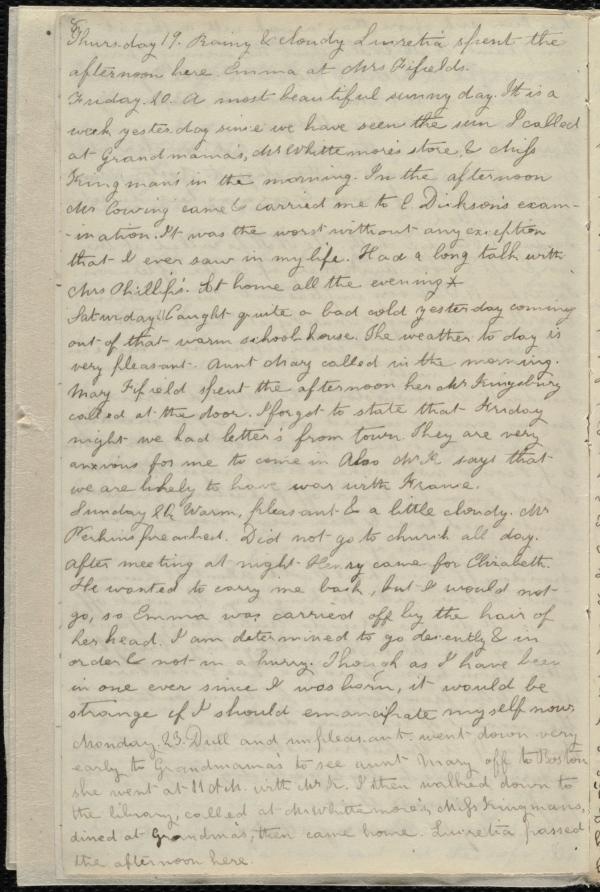 Thursday 19. Rainy & cloudy Lucretia spent the
afternoon here. Emma at Mrs Fifields.
Friday 20. A most beautiful sunny day. It is a
week yesterday since we have seen the sun I called
at Grandmama's, Mr Whittemore's store, & Miss
Kingman's in the morning. In the afternoon
Mr Cowing came & carried me to C. Dickson's exam-
-ination. It was the worst without any exception
that I ever saw in my life. Had a long talk with
Mrs Phillips. At home all the evening
Saturday Caught quite a bad cold yesterday coming
out of that warm school house. The weather to day is
very pleasant. Aunt Mary called in the morning.
Mary Fifield spent the afternoon her Mr Kingsbury
called at the door. I forgot to state that Friday
night we had letter's from town. They are very
anxious for me to come in Also Mr K says that
we are likely to have war with France.
Sunday 22. Warm, pleasant & a little cloudy. Mr
Perkins preached. Did not go to church all day.
After meeting at night Henry came for Elizabeth.
He wanted to carry me back, but I would not
go, so Emma was carried off by the hair of
her head. I am determined to go decently & in
order & not in a hurry. Though as I have been
in one ever since I was born, it would be
strange if I should emancipate myself now
Monday. 23. Dull and unpleasant. went down very
early to Grandmama's to see aunt Mary off to Boston
she went at 11 A M. with Mr K. I then walked down to
the library, called at Mr Whittemore's, Miss Kingmans,
dined at Grandma's, then came home. Lucretia passed
the afternoon here.